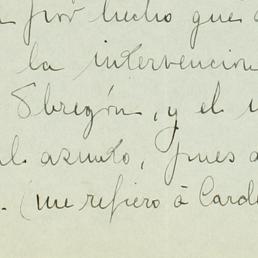 por hecho que
la intervención
Obregón, y el
asunto, pues
. (me refiero à Carde